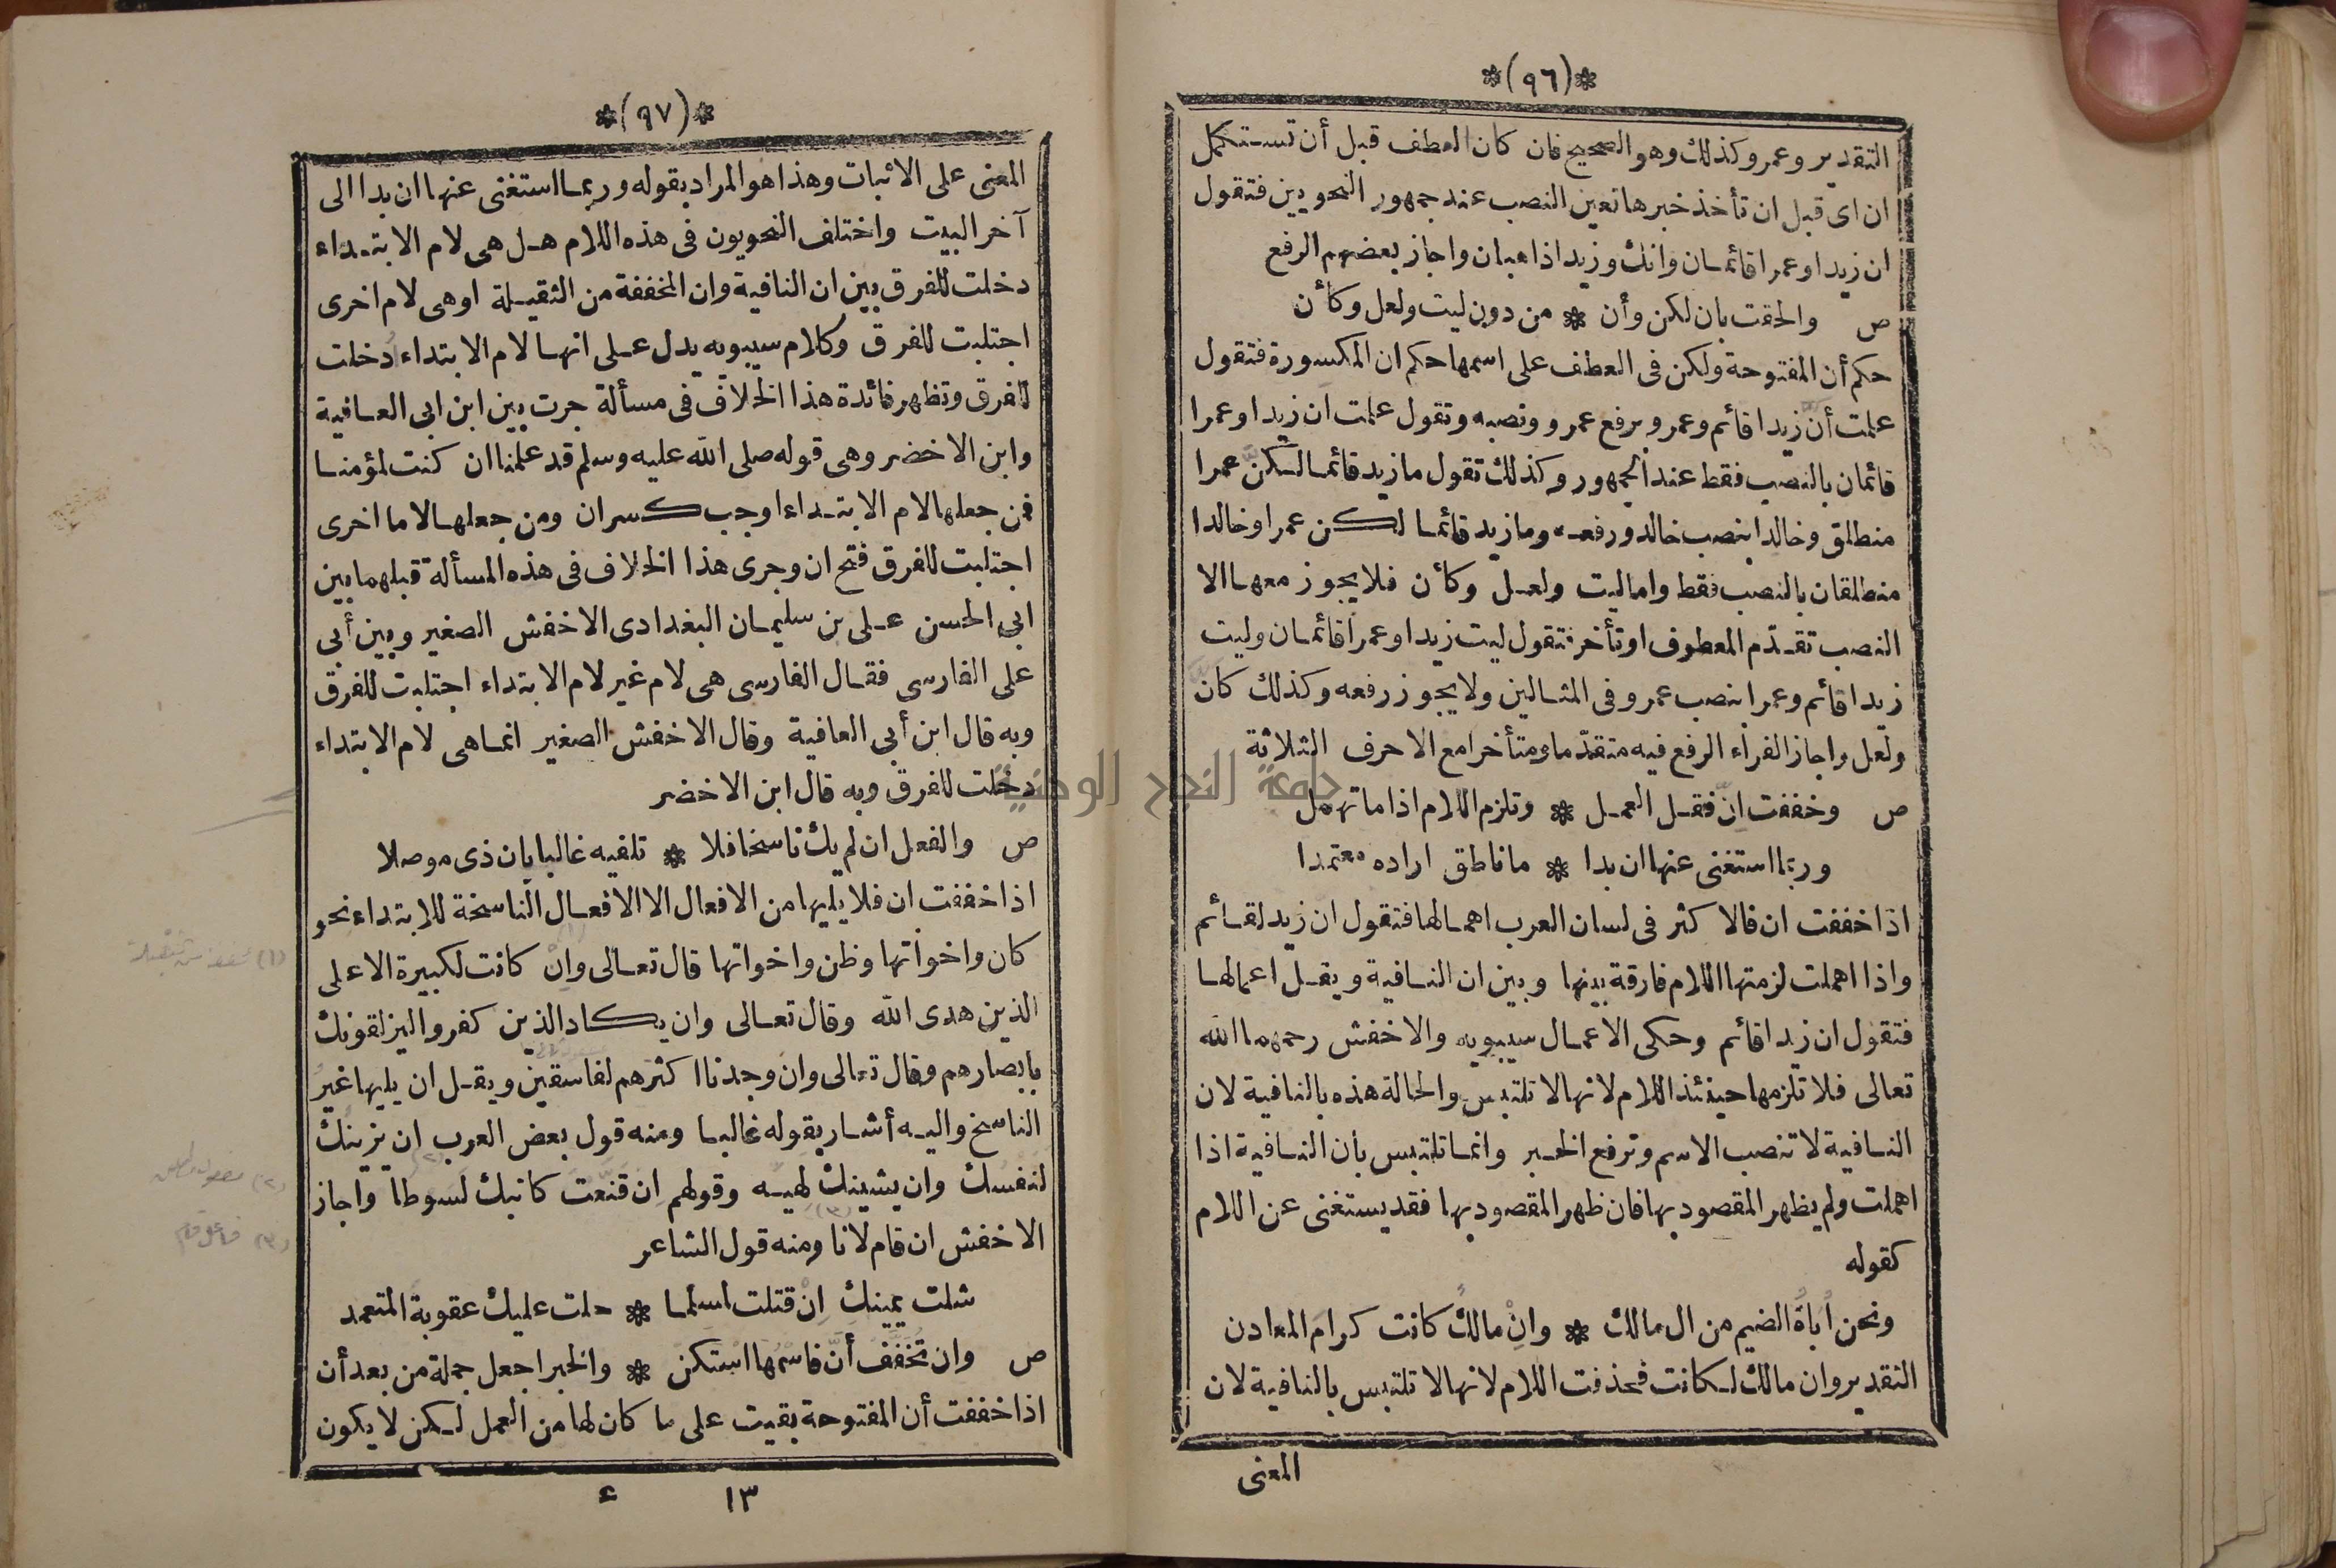 *(٩٦)*
التقدير وعمرو كذلك وهو الصحيح فان كان العطف قبل أن تستكمل
ان اى قبل ان تأخذ خبرها تعين النصب عند جمهور النحويين فتقول
ان زيدا وعمرا قائمان وانك وزيدا ذاهبان واجاز بعضهم الرفع
ص والحقت بان لكن وأن * من دون ليت ولعل وكأن
حكم أن المفتوحة ولكن فى العطف على اسمها حكم ان المكسورة فتقول
علمت أنّ زيدا قائم وعمرو برفع عمرو ونصبه وتقول علمت ان زيدا وعمرا
قائمان بالنصب فقط عند الجمهور وكذلك تقول ما زيد قائما لكنّ عمرا
منطلق وخالدا بنصب خالد ورفعه وما زيد قائما لكن عمرا وخالدا
منطلقان بالنصب فقط واما ليت ولعل وكأن فلا يجوز معها الا
النصب تقدّم المعطوف او تأخر فتقول ليت زيدا وعمرا قائمان وليت
زيدا قائم وعمرا بنصب عمرو فى المثالين ولا يجوز رفعه وكذلك كأن
ولعل واجاز الفراء الرفع فيه متقدّما ومتأخرا مع الاحرف الثلاثة
ص وخففت انّ فقل العمل * وتلزم اللام اذا ما تهمل
وربما استغنى عنها ان بدا * ما ناطق اراده معتمدا
اذا خففت ان فالاكثر فى لسان العرب اهمالها فتقول ان زيد لقائم
واذا اهملت لزمتها اللام فارقة بينها وبين ان النافية ويقل اعمالها
فتقول ان زيدا قائم وحكى الاعمال سيبويه والاخفش رحمهما الله
تعالى فلا تلزمها حينئذ اللام لانها لا تلتبس والحالة هذه بالنافية لان
النافية لا تنصب الاسم وترفع الخبر وانما تلتبس بأن النافية اذا
اهملت ولم يظهر المقصود بها فان ظهر المقصود بها فقد يستغنى عن اللام
كقوله
ونحن أُباةُ الضيم من ال مالك * وانْ مالكُ كانت كرامَ المعادن
التقدير وان مالك لكانت فحذفت اللام لانها لا تلتبس بالنافية لان
المعنى
*(٩٧)*
المعنى على الاثبات وهذا هو المراد بقوله وربما استغنى عنها ان بدا الى
آخر البيت واختلف النحويون فى هذه اللام هل هى لام الابتداء
دخلت للفرق بين ان النافية وان المخففة من الثقيلة او هى لام اخرى
اجتلبت للفرق وكلام سيبويه يدل على انها لام الابتداء دخلت
للفرق وتظهر فائدة هذا الخلاف فى مسألة جرت بين ابن ابى العافية
وابن الاخضر وهى قوله صلى الله عليه وسلم قد علمنا ان كنت لمؤمنا
فمن جعلها لام الابتداء اوجب كسر ان ومن جعلها لاما اخرى
اجتلبت للفرق فتح ان وجرى هذا الخلاف فى هذه المسألة قبلهما بين
ابى الحسن على بن سليمان البغدادى الاخفش الصغير وبين أبى
على الفارسى فقال الفارسى هى لام غير لام الابتداء اجتلبت للفرق
وبه قال ابن أبى العافية وقال الاخفش الصغير انما هى لام الابتداء
دخلت للفرق وبه قال ابن الاخضر
ص والفعل ان لم يك ناسخا فلا * تلفيه غالبا بان ذى موصلا
اذا خففت ان فلا يليها من الافعال الا الافعال الناسخة للابتداء نحو
كان واخواتها وظن واخواتها قال تعالى وانْ كانت لكبيرة الا على
الذين هدى الله وقال تعالى وان يكاد الذين كفروا ليزلقونك
بابصارهم وقال تعالى وان وجدنا اكثرهم لفاسقين ويقل ان يليها غير
الناسخ واليه أشار بقوله غالبا ومنه قول بعض العرب ان يزينك
لنفسك وان يشينك لهيه وقولهم ان قنّعت كاتبك لسوطا واجاز
الاخفش ان قام لانا ومنه قول الشاعر
شلت يمينك انْ قتلت لمسلما * حلت عليك عقوبة المتعمد
ص وان تُخَفَّفْ أنّ فاسمُها اسْتَكَن * والخبر اجعل جملة من بعد أن
اذا خففت أن المفتوحة بقيت على ما كان لها من العمل لكن لا يكون
١٣ ء
جامعة النجاح الوطنية